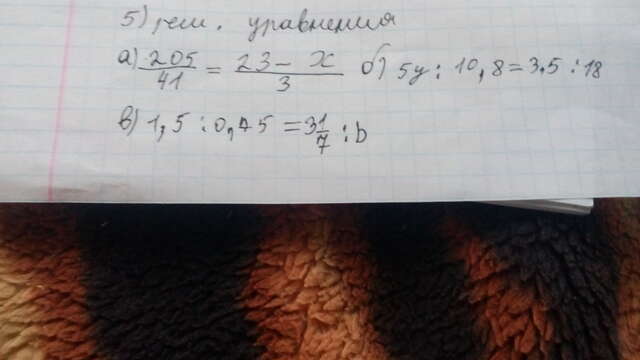 5) реш. уравнения
а) 205/41 = 23 - x/3 б) 5y : 10,8 = 3,5 : 18
в) 1,5 : 0,75 = 3 1/7 : b